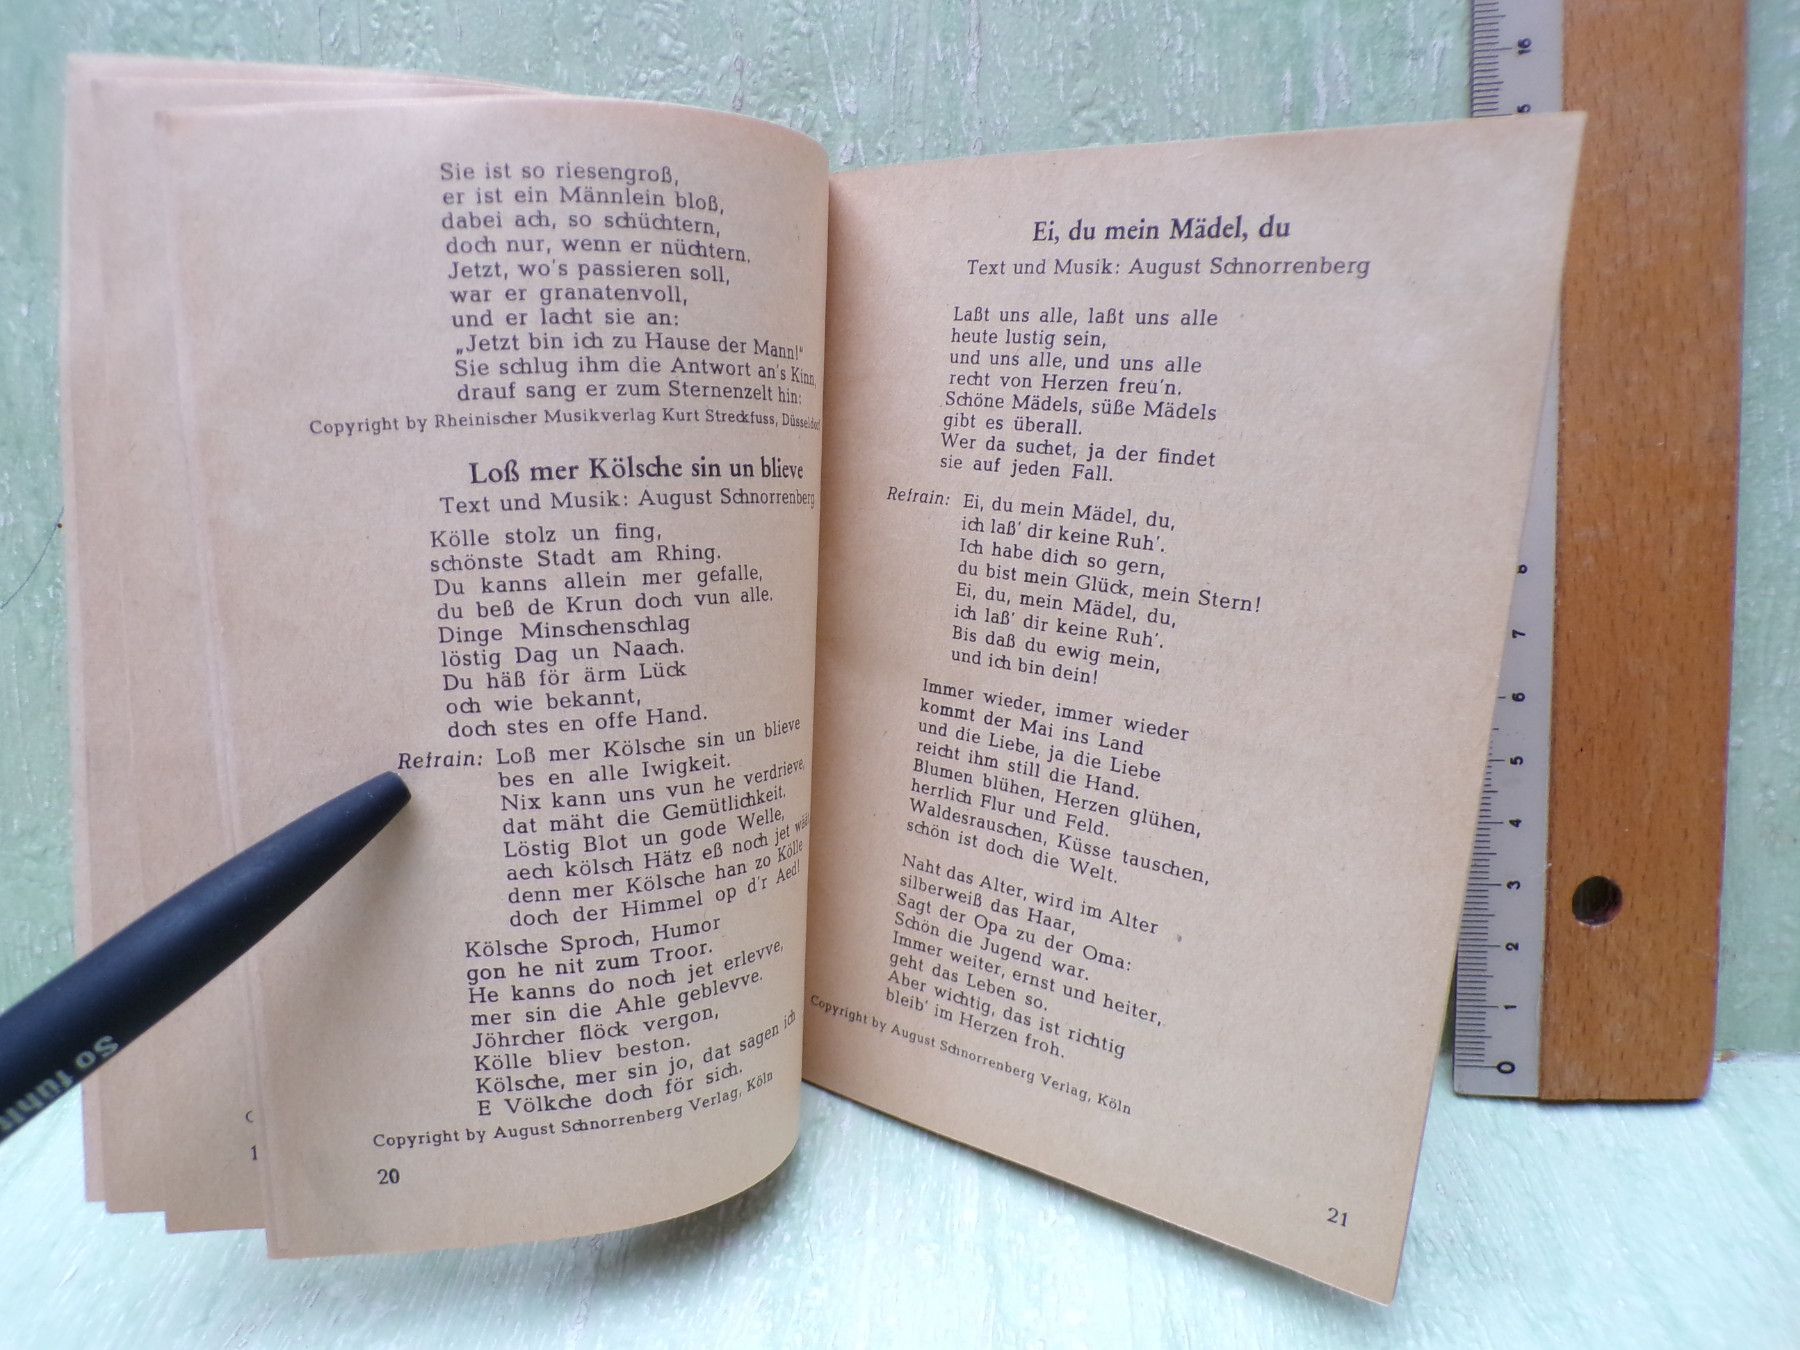 Sie ist so riesengroß,
er ist ein Männlein bloß,
dabei ach, so schüchtern,
doch nur, wenn er nüchtern.
Jetzt, wo's passieren soll,
war er granatenvoll,
und er lacht sie an:
„Jetzt bin ich zu Hause der Mann!“
Sie schlug ihm die Antwort an's Kinn,
drauf sang er zum Sternenzelt hin:
Copyright by Rheinischer Musikverlag Kurt Streckfuss, Düsseldorf
Loß mer Kölsche sin un blieve
Text und Musik: August Schnorrenberg
Kölle stolz un fing,
schönste Stadt am Rhing.
Du kanns allein mer gefalle,
du beß de Krun doch vun alle.
Dinge Minschenschlag
löstig Dag un Naach.
Du häß för ärm Lück
och wie bekannt,
doch stes en offe Hand.
Refrain: Loß mer Kölsche sin un blieve
bes en alle Iwigkeit.
Nix kann uns vun he verdrieve,
dat mäht die Gemütlichkeit.
Löstig Blot un gode Welle,
aech kölsch Hätz eß noch jet
denn mer Kölsche han zo Kölle
doch der Himmel op d'r Aed!
Kölsche Sproch, Humor
gon he nit zum Troor.
He kanns do noch jet erlevve,
mer sin die Ahle geblevve.
Jöhrcher flöck vergon,
Kölle bliev beston.
Kölsche, mer sin jo, dat sagen ich
E Völkche doch för sich.
Copyright by August Schnorrenberg Verlag, Köln
20
Ei, du mein Mädel, du
Text und Musik: August Schnorrenberg
Laßt uns alle, laßt uns alle
heute lustig sein,
und uns alle, und uns alle
recht von Herzen freu'n.
Schöne Mädels, süße Mädels
gibt es überall.
Wer da suchet, ja der findet
sie auf jeden Fall.
Refrain: Ei, du mein Mädel, du,
ich laß' dir keine Ruh'.
Ich habe dich so gern,
du bist mein Glück, mein Stern!
Ei, du, mein Mädel, du,
ich laß' dir keine Ruh'.
Bis daß du ewig mein,
und ich bin dein!
Immer wieder, immer wieder
kommt der Mai ins Land
und die Liebe, ja die Liebe
reicht ihm still die Hand.
Blumen blühen, Herzen glühen,
herrlich Flur und Feld.
Waldesrauschen, Küsse tauschen,
schön ist doch die Welt.
Naht das Alter, wird im Alter
silberweiß das Haar,
Sagt der Opa zu der Oma:
Schön die Jugend war.
Immer weiter, ernst und heiter,
geht das Leben so.
Aber wichtig, das ist richtig
bleib' im Herzen froh.
Copyright by August Schnorrenberg Verlag, Köln
21
So fühlt
16
8
7
6
5
4
3
2
1
0